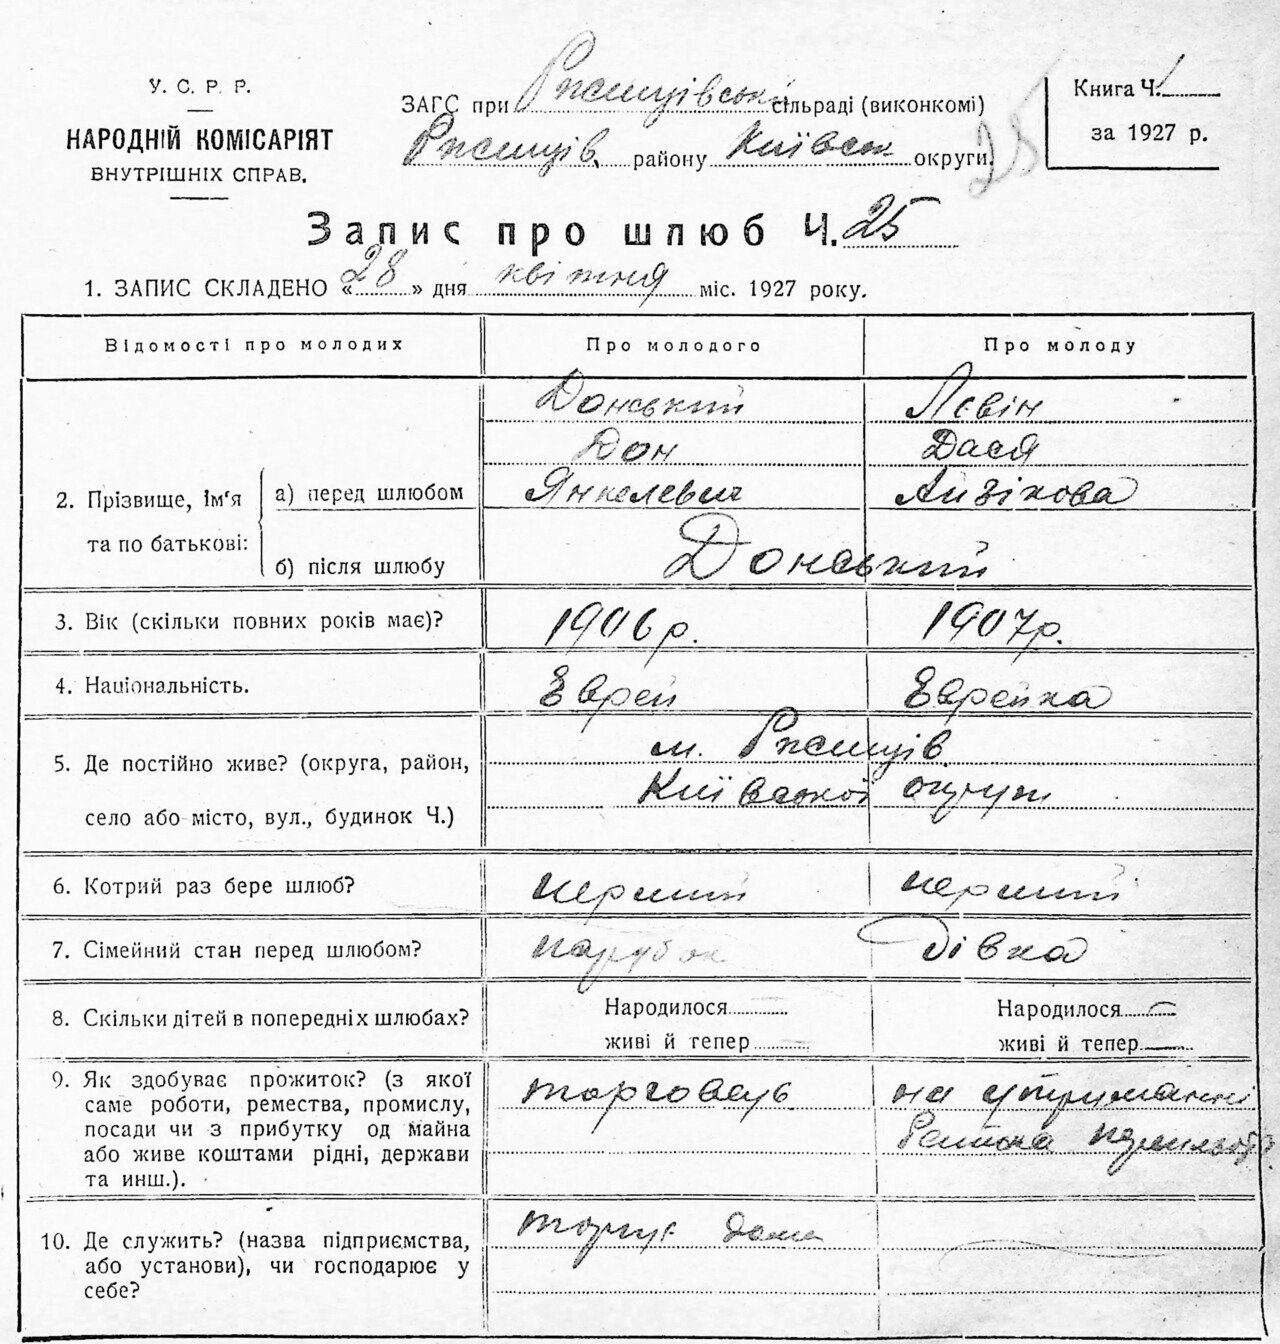 У. С. Р. Р.
НАРОДНІЙ КОМІСАРІЯТ
ВНУТРІШНІХ СПРАВ.
ЗАГС при Ржищівській сільраді (виконкомі)
Ржищів. району Київськ округи.
25
Книга Ч. 1
за 1927 р.
Запис про шлюб Ч. 25
1. ЗАПИС СКЛАДЕНО «28» дня квітня міс. 1927 року.
Відомості про молодих
Про молодого
Про молоду
2. Прізвище, Ім'я та по батькові:
а) перед шлюбом
Донський
Дон
Янкелевич
Лєвін
Дася
Айзікова
б) після шлюбу
Донський
3. Вік (скільки повних років має)?
1906 р.
1907 р.
4. Національність.
Еврей
Еврейка
5. Де постійно живе? (округа, район,
село або місто, вул., будинок Ч.)
м. Ржищів
Київської округи
6. Котрий раз бере шлюб?
перший
перший
7. Сімейний стан перед шлюбом?
парубок
дівка
8. Скільки дітей в попередніх шлюбах?
Народилося
живі й тепер
Народилося
живі й тепер
9. Як здобуває прожиток? (з якої
саме роботи, ремества, промислу,
посади чи з прибутку од майна
або живе коштами рідні, держави
та инш.).
торговець
на утриманні
10. Де служить? (назва підприємства,
або установи), чи господарює у
себе?
торгує дома